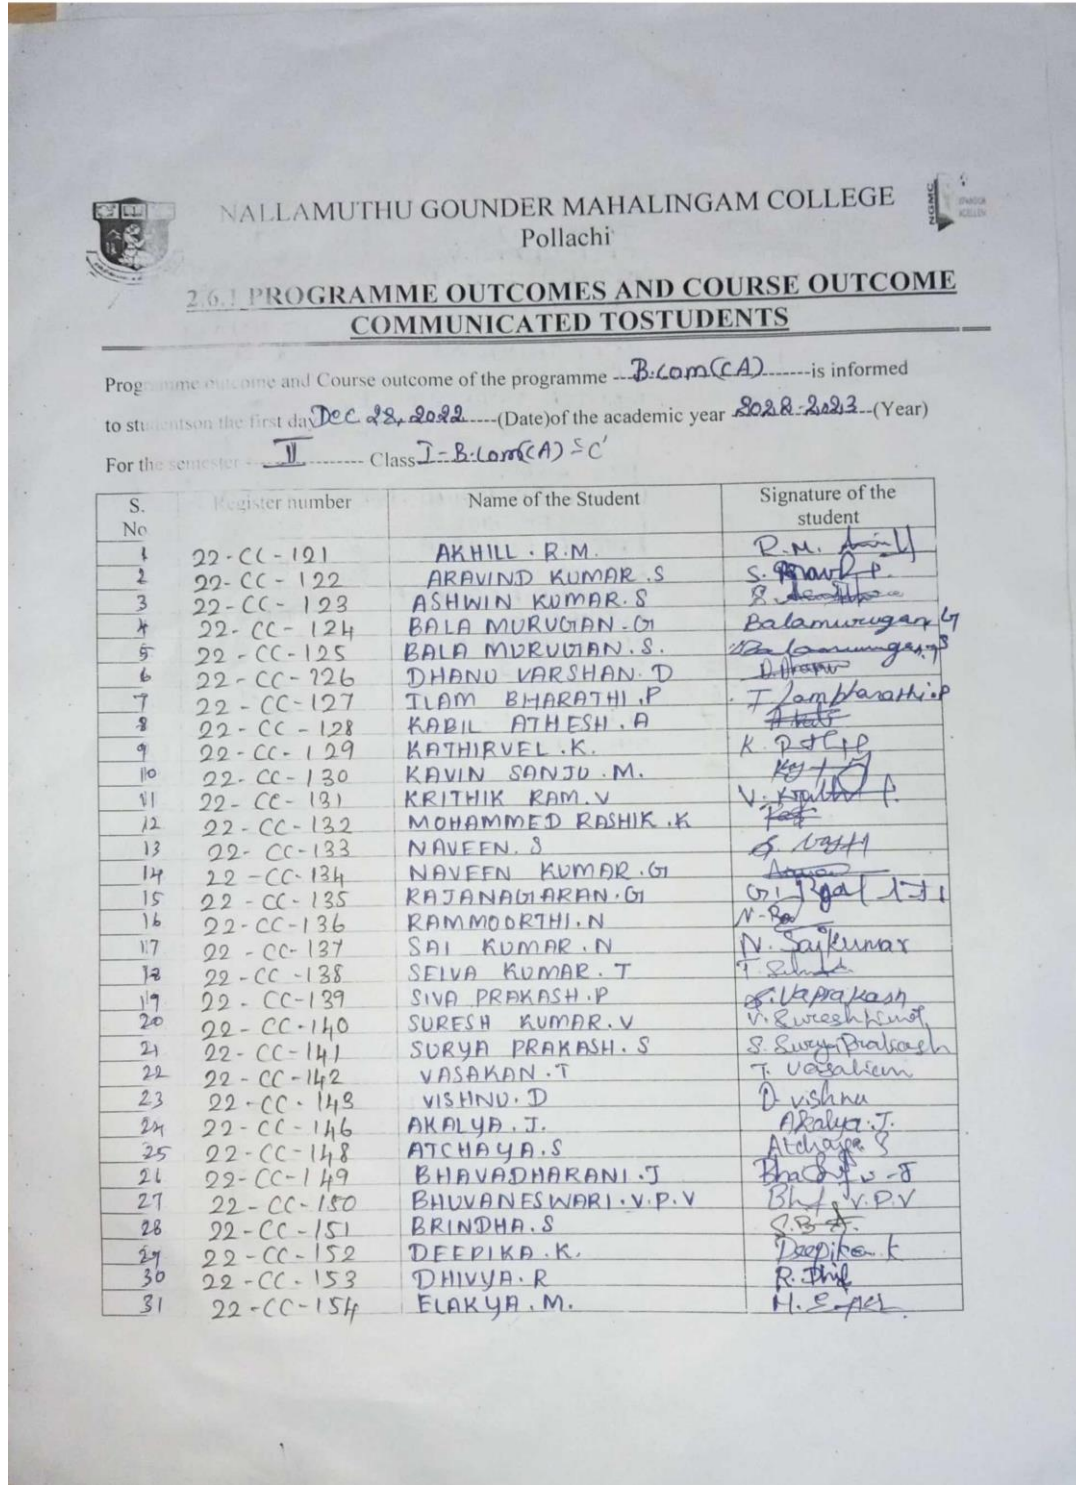 NALLAMUTHU GOUNDER MAHALINGAM COLLEGE
NGMC
Pollachi
2.6.1 PROGRAMME OUTCOMES AND COURSE OUTCOME
COMMUNICATED TOSTUDENTS
Programme outcome and Course outcome of the programme ---B.Com(CA)-------is informed
to studentson the first day Dec 28, 2022-----(Date)of the academic year -2022-2023--(Year)
For the semester ---II--------- Class I-B.Com(CA) 'C'
S. No Register number Name of the Student Signature of the student
1 22-CC-121 AKHILL . R.M. R.M.
2 22-CC-122 ARAVIND KUMAR.S S.
3 22-CC-123 ASHWIN KUMAR.S S.
4 22-CC-124 BALA MURUGAN.G Balamurugan G
5 22-CC-125 BALA MURUGAN.S. Balamurugan.S
6 22-CC-126 DHANU VARSHAN.D D.
7 22-CC-127 ILAM BHARATHI.P Ilambharathi.P
8 22-CC-128 KABIL ATHESH.A
9 22-CC-129 KATHIRVEL.K. K.
10 22-CC-130 KAVIN SANJU.M.
11 22-CC-131 KRITHIK RAM.V V.
12 22-CC-132 MOHAMMED RASHIK.K
13 22-CC-133 NAVEEN.S S.
14 22-CC-134 NAVEEN KUMAR.G
15 22-CC-135 RAJANAGARAN.G G.
16 22-CC-136 RAMMOORTHI.N N.
17 22-CC-137 SAI KUMAR.N N. Saikumar
18 22-CC-138 SELVA KUMAR.T T.
19 22-CC-139 SIVA PRAKASH.P Sivaprakash
20 22-CC-140 SURESH KUMAR.V V.
21 22-CC-141 SURYA PRAKASH.S S. Surya Prakash
22 22-CC-142 VASAKAN.T T.
23 22-CC-143 VISHNU.D D vishnu
24 22-CC-146 AKALYA.J. Akalya.J.
25 22-CC-148 ATCHAYA.S Atchaya S
26 22-CC-149 BHAVADHARANI.J
27 22-CC-150 BHUVANESWARI.V.P.V V.P.V
28 22-CC-151 BRINDHA.S
29 22-CC-152 DEEPIKA.K. Deepika.k
30 22-CC-153 DHIVYA.R R.
31 22-CC-154 ELAKYA.M. M.